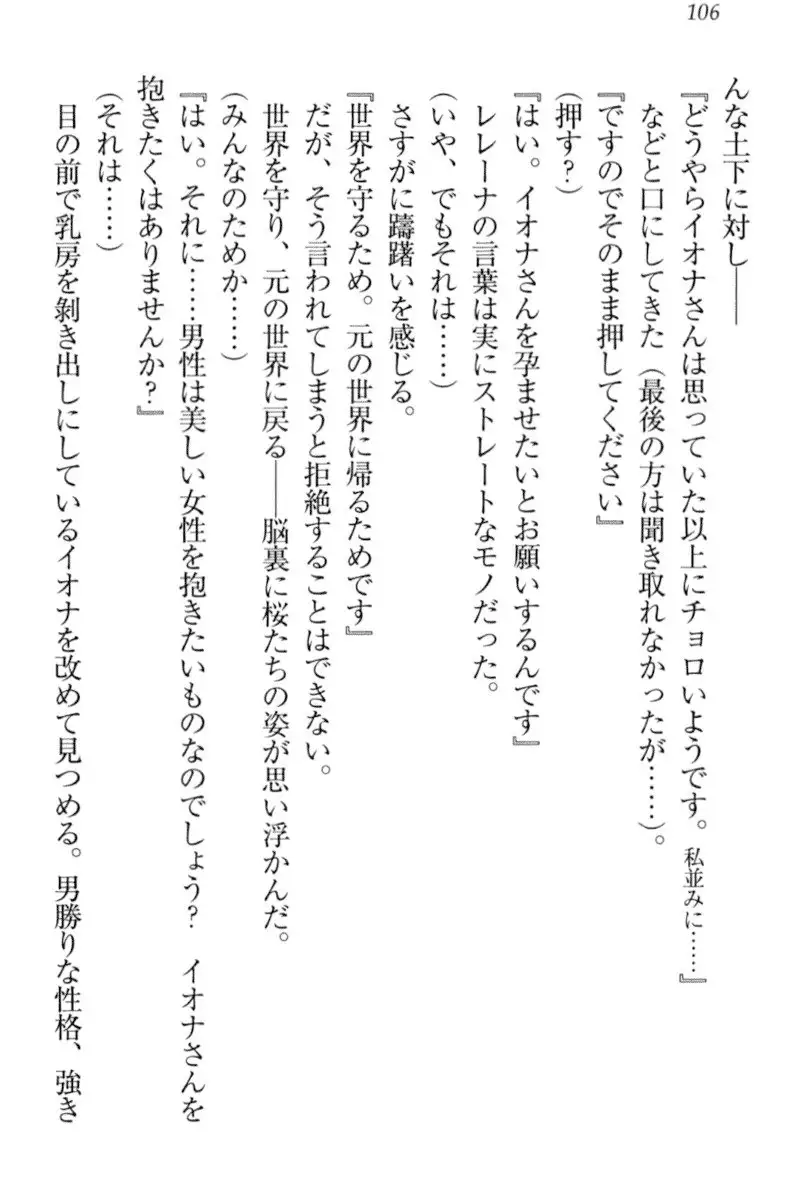 106
んな土下に対し――
『どうやらイオナさんは思っていた以上にチョロいようです。私並みに……』
などと口にしてきた（最後の方は聞き取れなかったが……）。
『ですのでそのまま押してください』
（押す？）
『はい。イオナさんを孕ませたいとお願いするんです』
レレーナの言葉は実にストレートなモノだった。
（いや、でもそれは……）
さすがに躊躇いを感じる。
『世界を守るため。元の世界に帰るためです』
だが、そう言われてしまうと拒絶することはできない。
世界を守り、元の世界に戻る――脳裏に桜たちの姿が思い浮かんだ。
（みんなのためか……）
『はい。それに……男性は美しい女性を抱きたいものなのでしょう？　イオナさんを
抱きたくはありませんか？』
（それは……）
目の前で乳房を剝き出しにしているイオナを改めて見つめる。男勝りな性格、強き